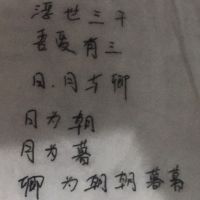 浮世三千
吾爱有三
日.月与卿
日为朝
月为暮
卿为朝朝暮暮